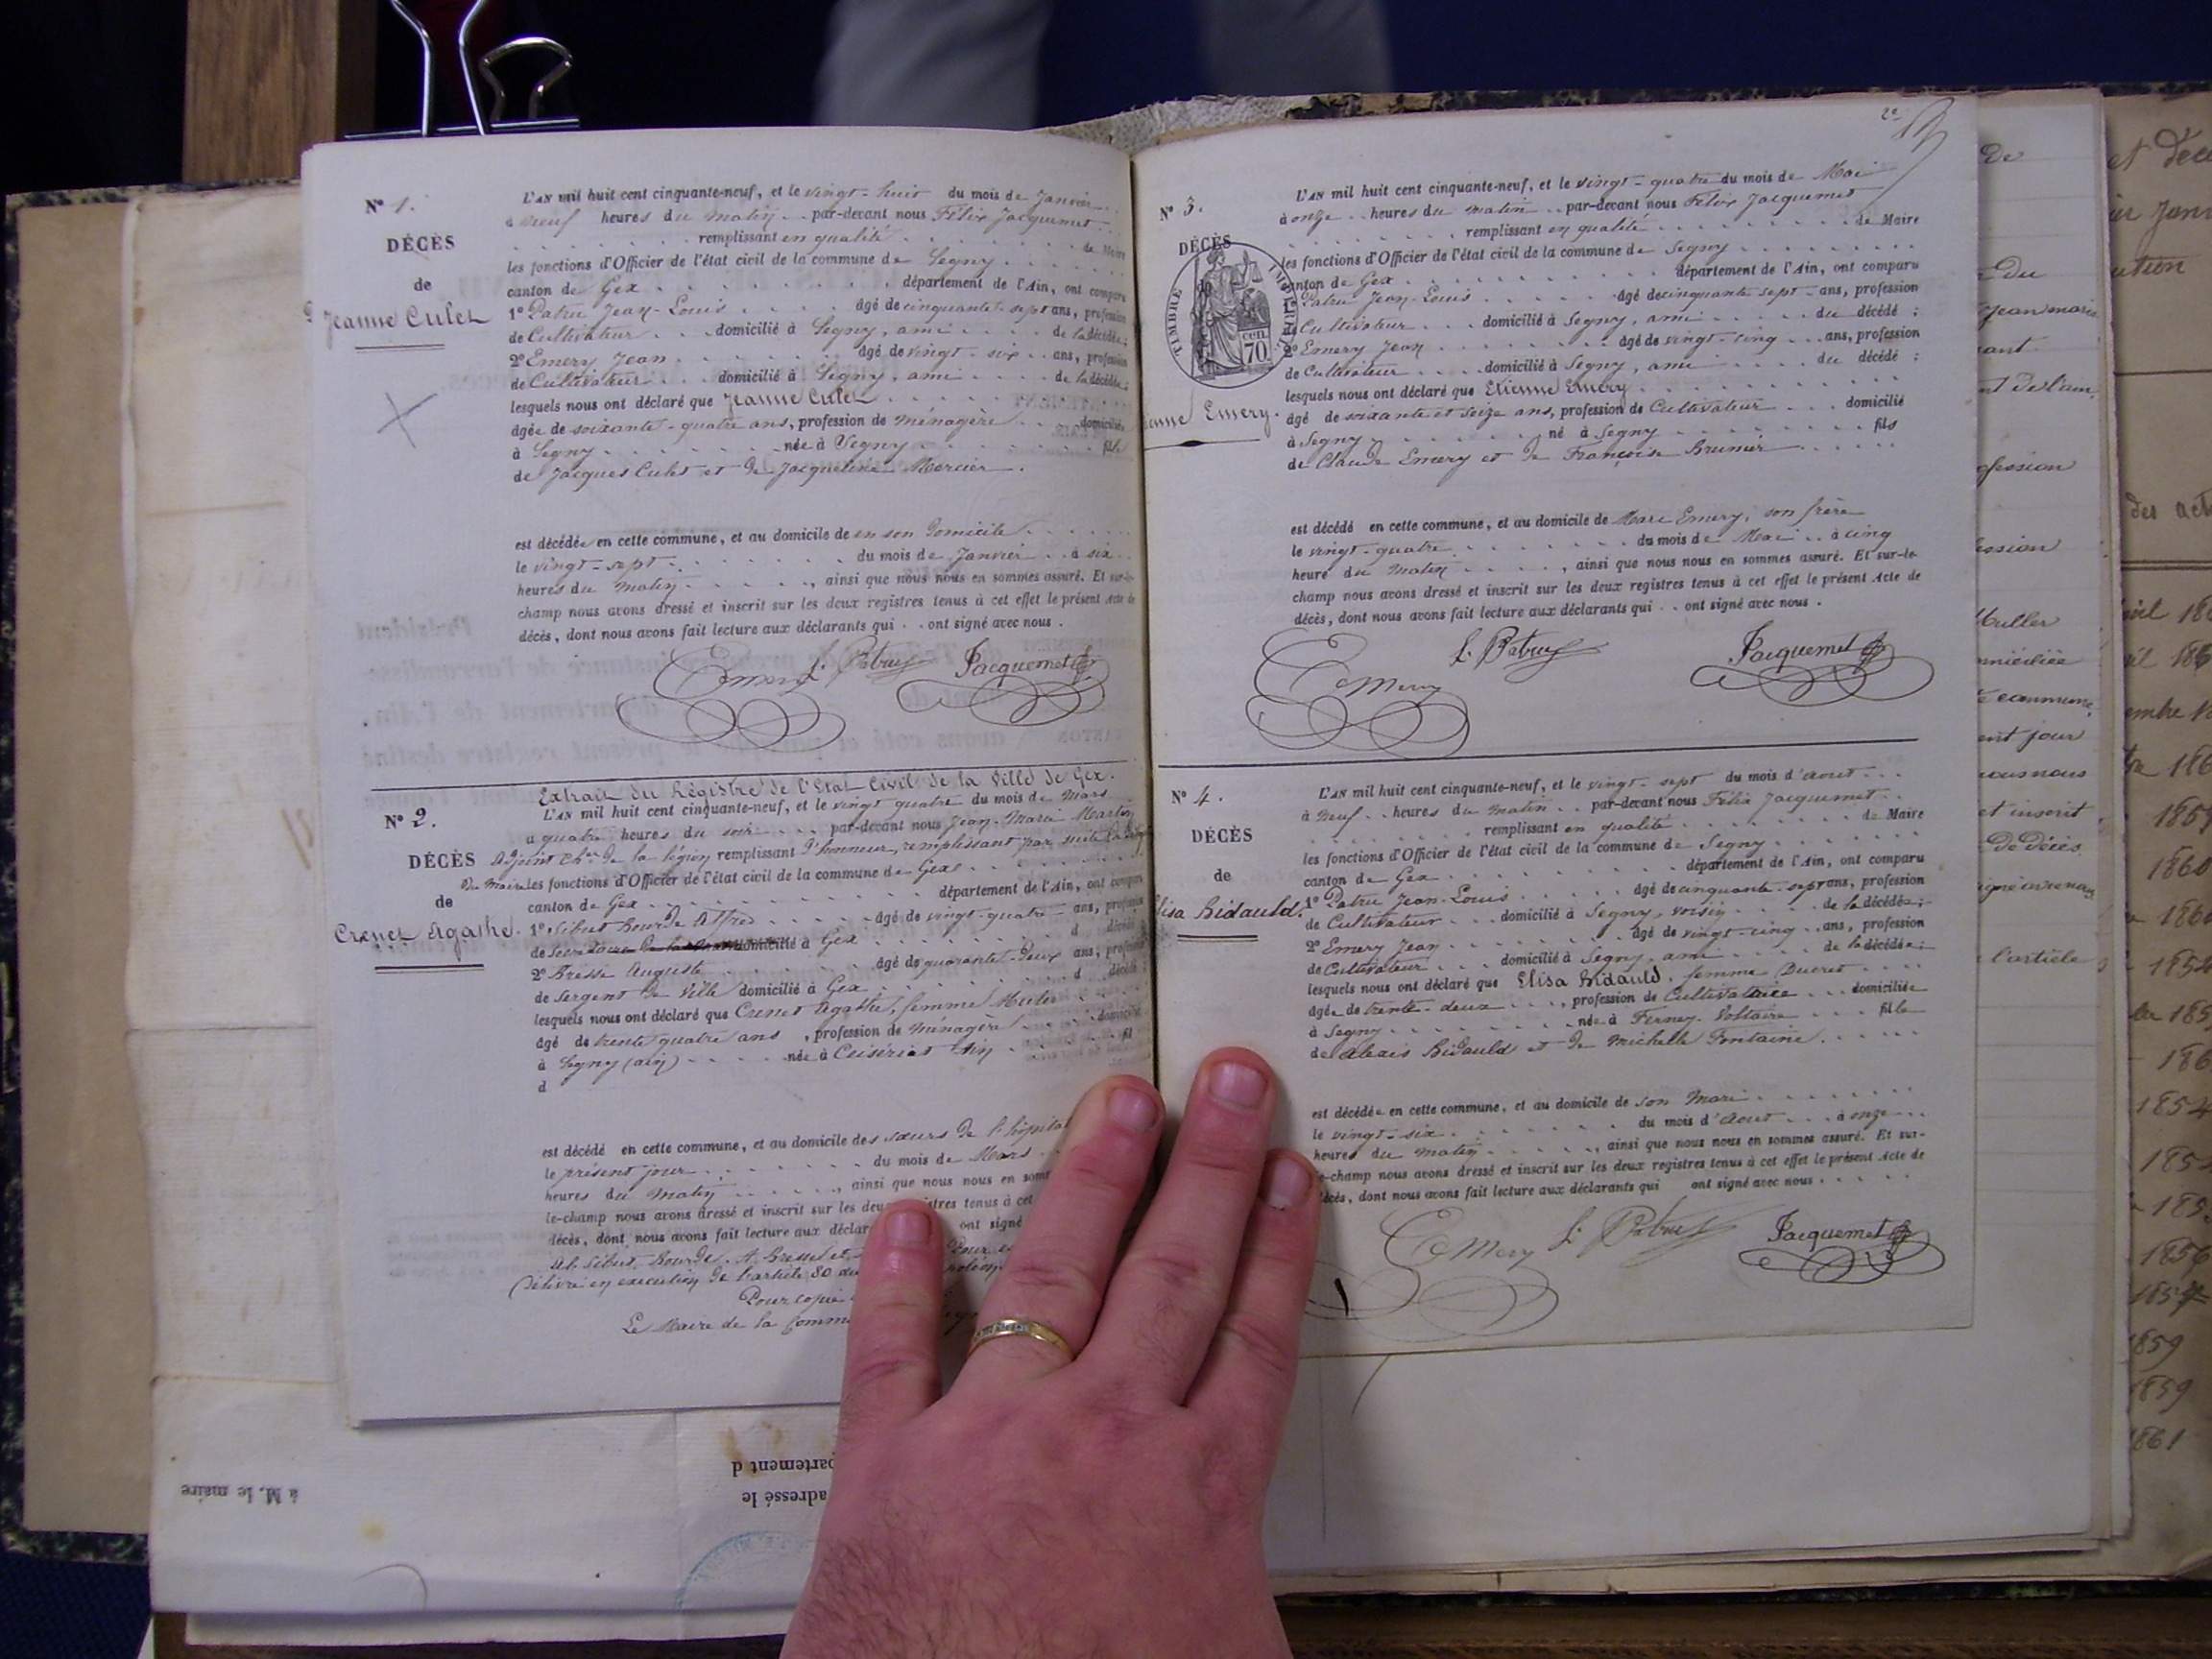 N° 1.
DÉCÈS
de
Jeanne Culet
L'AN mil huit cent cinquante-neuf, et le vingt-huit du mois de Janvier
à neuf heures du matin par-devant nous Félix Jacquemet
remplissant en qualité de Maire
les fonctions d'Officier de l'état civil de la commune de Segny
canton de Gex département de l'Ain, ont comparu
1° Patru Jean-Louis âgé de cinquante-sept ans, profession
de Cultivateur domicilié à Segny, ami de la décédée;
2° Emery Jean âgé de vingt-six ans, profession
de Cultivateur domicilié à Segny, ami de la décédée;
lesquels nous ont déclaré que Jeanne Culet
âgée de soixante-quatre ans, profession de ménagère domiciliée
à Segny née à Segny fille
de Jacques Culet et de Jacqueline Mercier.
est décédée en cette commune, et au domicile de en son Domicile
le vingt-sept du mois de Janvier à six
heures du matin, ainsi que nous nous en sommes assuré. Et sur-le-
champ nous avons dressé et inscrit sur les deux registres tenus à cet effet le présent Acte de
décès, dont nous avons fait lecture aux déclarants qui ont signé avec nous.
Emery L. Patru Jacquemet
N° 2.
DÉCÈS
de
Crenet Agathe.
Extrait du Régistre de l'Etat Civil de la Ville de Gex.
L'AN mil huit cent cinquante-neuf, et le vingt quatre du mois de Mars
à quatre heures du soir par-devant nous Jean-Marie Martin
Adjoint Cher de la légion remplissant d'honneur, remplissant par suite
du Maire les fonctions d'Officier de l'état civil de la commune de Gex
canton de Gex département de l'Ain, ont comparu
1° Sibut Bourde Alfred âgé de vingt-quatre ans, profession
de domicilié à Gex d décédé
2° Bresse Auguste âgé de quarante-deux ans, profession
de Sergent de Ville domicilié à Gex d décédé
lesquels nous ont déclaré que Crenet Agathe, femme Muler
âgé de trente quatre ans, profession de ménagère domicilié
à Segny (ain) née à Ceisériat Ain fil
d
est décédé en cette commune, et au domicile des sœurs de l'hôpital
le présent jour du mois de Mars
heures du matin, ainsi que nous nous en som
le-champ nous avons dressé et inscrit sur les deux registres tenus à cet
décès, dont nous avons fait lecture aux déclar ont signé
Al. Sibut Bourde, A. Bresse et
Délivré en exécution de l'article 80 du
Pour copie
Le Maire de la Comm
2e
N° 3.
DÉCÈS
TIMBRE IMPERIAL
70 cen.
ienne Emery.
L'AN mil huit cent cinquante-neuf, et le vingt-quatre du mois de Mai
à onze heures du matin par-devant nous Félix Jacquemet
remplissant en qualité de Maire
les fonctions d'Officier de l'état civil de la commune de Segny
canton de Gex département de l'Ain, ont comparu
Patru Jean-Louis âgé de cinquante sept ans, profession
Cultivateur domicilié à Segny, ami du décédé;
2° Emery Jean âgé de vingt-cinq ans, profession
de Cultivateur domicilié à Segny, ami du décédé:
lesquels nous ont déclaré que Etienne Emery
âgé de soixante et seize ans, profession de Cultivateur domicilié
à Segny né à Segny fils
de Claude Emery et de Françoise Brunier
est décédé en cette commune, et au domicile de Marc Emery, son frère
le vingt-quatre du mois de Mai à cinq
heure du matin, ainsi que nous nous en sommes assuré. Et sur-le-
champ nous avons dressé et inscrit sur les deux registres tenus à cet effet le présent Acte de
décès, dont nous avons fait lecture aux déclarants qui ont signé avec nous.
Emery L. Patru Jacquemet
N° 4.
DÉCÈS
de
lisa Bidauld.
L'AN mil huit cent cinquante-neuf, et le vingt-sept du mois d'aout
à neuf heures du matin par-devant nous Félix Jacquemet
remplissant en qualité de Maire
les fonctions d'Officier de l'état civil de la commune de Segny
canton de Gex département de l'Ain, ont comparu
1° Patru Jean-Louis âgé de cinquante-sept ans, profession
de Cultivateur domicilié à Segny, voisin de la décédée;
2° Emery Jean âgé de vingt cinq ans, profession
de Cultivateur domicilié à Segny, ami de la décédée;
lesquels nous ont déclaré que Elisa Bidauld, femme Ducret
âgée de trente-deux, profession de Cultivatrice domiciliée
à Segny née à Ferney-Voltaire fille
de Alexis Bidauld et de Michelle Fontaine.
est décédée en cette commune, et au domicile de son Mari
le vingt-six du mois d'aout à onze
heures du matin, ainsi que nous nous en sommes assuré. Et sur-
le-champ nous avons dressé et inscrit sur les deux registres tenus à cet effet le présent Acte de
décès, dont nous avons fait lecture aux déclarants qui ont signé avec nous
Emery L. Patru Jacquemet
à M. le maire
partement d
adressé le
De
Du
Jean marie
fession
ession
Muller
omiciliée
commune,
ent jour
vous nous
et inscrit
De Décès
l'article
et déc
ier Janv
des act
1860
1854
1859
1859
1861